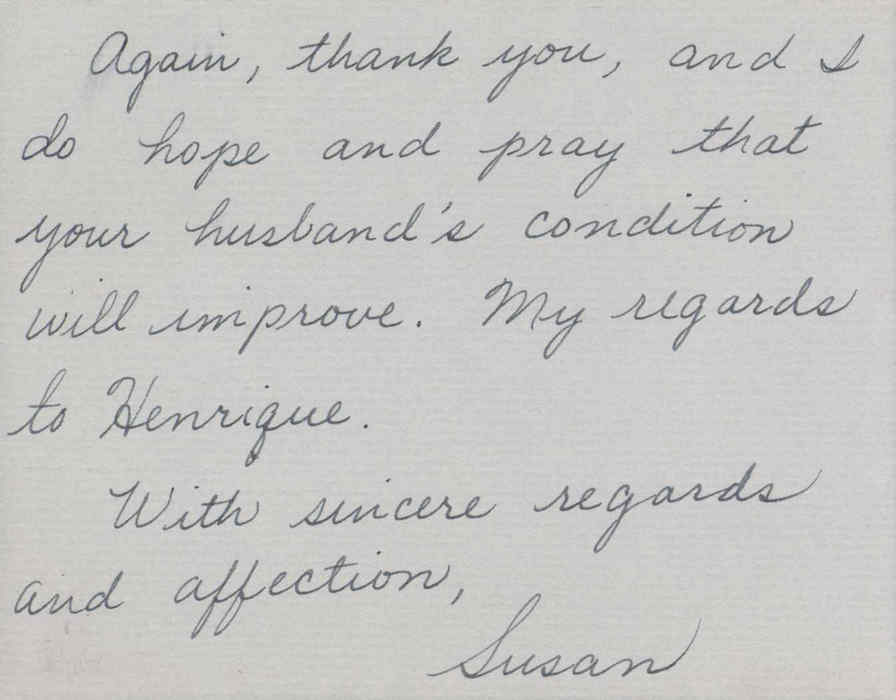 Again, thank you, and I
do hope and pray that
your husband's condition
will improve. My regards
to Henrique.
With sincere regards
and affection,
Susan